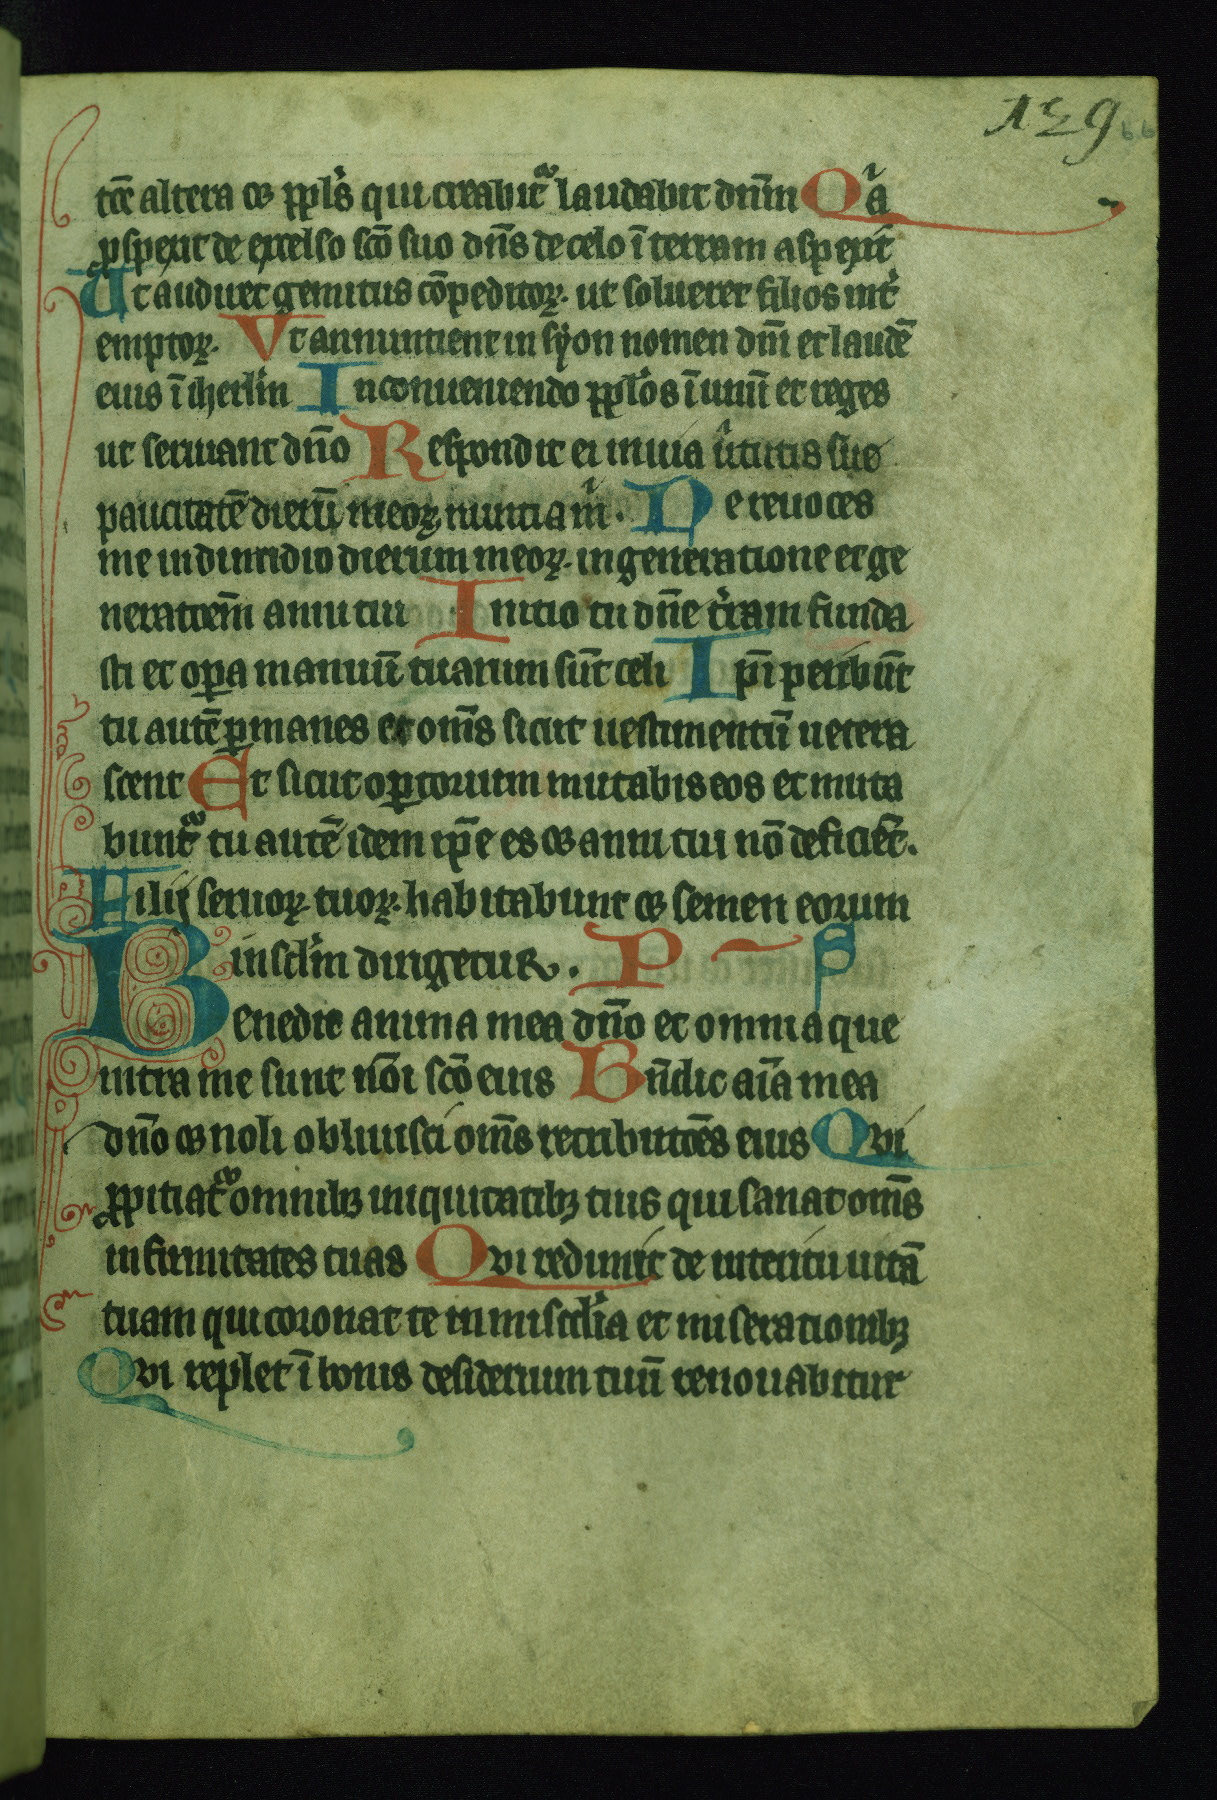 129
66
tōe altera ⁊ pplꝰs qui creabit᷑ laudabit dn̄m Qꝛa
ꝓspexit de excelso sc̄o suo dn̄s de celo ī terram aspexit
Ut audiret gemitus cōpeditoꝝ. ut solueret filios int̕
emptoꝝ. Vt annuntient in syon nomen dn̄i et laudē
eius ī iherl̄m In conueniendo ppl̄os ī unū et reges
ut seruiant dn̄o Respondit ei in uia u̕tutis sue
paucitatē dierū meoꝝ nuntia m̕. Ne reuoces
me in dimidio dierum meoꝝ. in generatione et ge
neratōem̄ anni tui Initio tu dn̄e t̕ram funda
sti et oꝑa manuū tuarum sūt celi Ip̄i peribūt
tu autē ꝑmanes et om̄s sicut uestimentū uetera
scent Et sicut oꝑtorium mutabis eos et muta
bunt᷑ tu autē idem ip̄e es ⁊ anni tui nō deficiēt.
Filij seruoꝝ tuoꝝ. habitabunt ⁊ semen eorum
in scl̄m dirigetur. P S
Benedic anima mea dn̄o et omnia que
intra me sunt nōi sc̄o eius Bn̄dic aīa mea
dn̄o ⁊ noli obliuisci om̄s retributōes eius Qvi
ꝓpitiat᷑ omnibꝫ iniquitatibꝫ tuis qui sanat om̄s
infirmitates tuas Qvi redimit de interitu uitā
tuam qui coronat te in miscd̄ia et miserationibꝫ
Qvi replet ī bonis desiderium tuū renouabitur